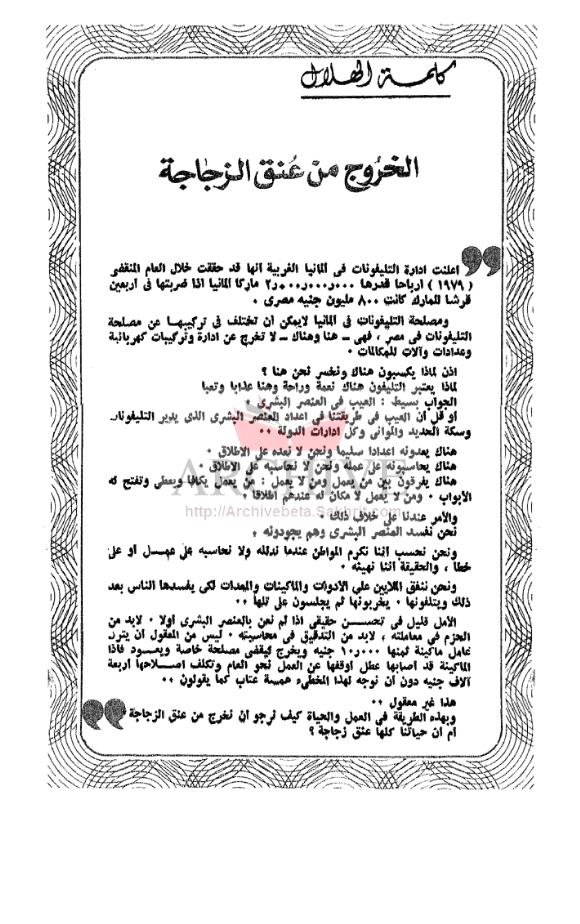 كلمة الهلال
الخروج من عنق الزجاجة
اعلنت ادارة التليفونات فى المانيا الغربية انها قد حققت خلال العام المنقضى
( ١٩٧٩ ) ارباحا قدرها ٢٫٠٠٠٫٠٠٠٫٠٠٠ ماركا المانيا اذا ضربتها فى اربعين
قرشا للمارك كانت ٨٠٠ مليون جنيه مصرى ٠
ومصلحة التليفونات فى المانيا لايمكن ان تختلف فى تركيبها عن مصلحة
التليفونات فى مصر ، فهى ــ هنا وهناك ــ لا تخرج عن ادارة وتركيبات كهربائية
وعدادات وآلات للمكالمات ٠
اذن لماذا يكسبون هناك ونخسر نحن هنا ؟
لماذا يعتبر التليفون هناك نعمة وراحة وهنا عذابا وتعبا
الجواب بسيط : العيب فى العنصر البشرى ٠
او قل ان العيب فى طريقتنا فى اعداد العنصر البشرى الذى يدير التليفونات
وسكة الحديد والموانى وكل ادارات الدولة ٠٠
هناك يعدونه اعدادا سليما ونحن لا نعده على الاطلاق ٠
هناك يحاسبونه على عمله ونحن لا نحاسبه على الاطلاق ٠
هناك يفرقون بين من يعمل ومن لا يعمل : من يعمل يكافأ ويعطى وتفتح له
الأبواب ٠ ومن لا يعمل لا مكان له عندهم اطلاقا ٠
ARCHIVE
http://Archivebeta.Sakhrit.com
والأمر عندنا على خلاف ذلك ٠
نحن نفسد العنصر البشرى وهم يجودونه ٠
ونحن نحسب اننا نكرم المواطن عندما ندلله ولا نحاسبه على عمل او على
خطا ، والحقيقة اننا نهينه ٠
ونحن ننفق الملايين على الأدوات والماكينات والمعدات لكى يفسدها الناس بعد
ذلك ويتلفونها ٠ يخربونها ثم يجلسون على تلها ٠٠
الأمل قليل فى تحسن حقيقى اذا لم نعن بالعنصر البشرى اولا ٠ لابد من
الحزم فى معاملته ، لابد من التدقيق فى محاسبته ٠ ليس من المعقول ان يترك
عامل ماكينة ثمنها ١٠٫٠٠٠ جنيه ويخرج ليقضى مصلحة خاصة ويعود فاذا
الماكينة قد اصابها عطل اوقفها عن العمل نحو العام وتكلف اصلاحها اربعة
آلاف جنيه دون ان نوجه لهذا المخطىء همسة عتاب كما يقولون ٠٠
هذا غير معقول ٠٠
وبهذه الطريقة فى العمل والحياة كيف نرجو ان نخرج من عنق الزجاجة
ام ان حياتنا كلها عنق زجاجة ؟